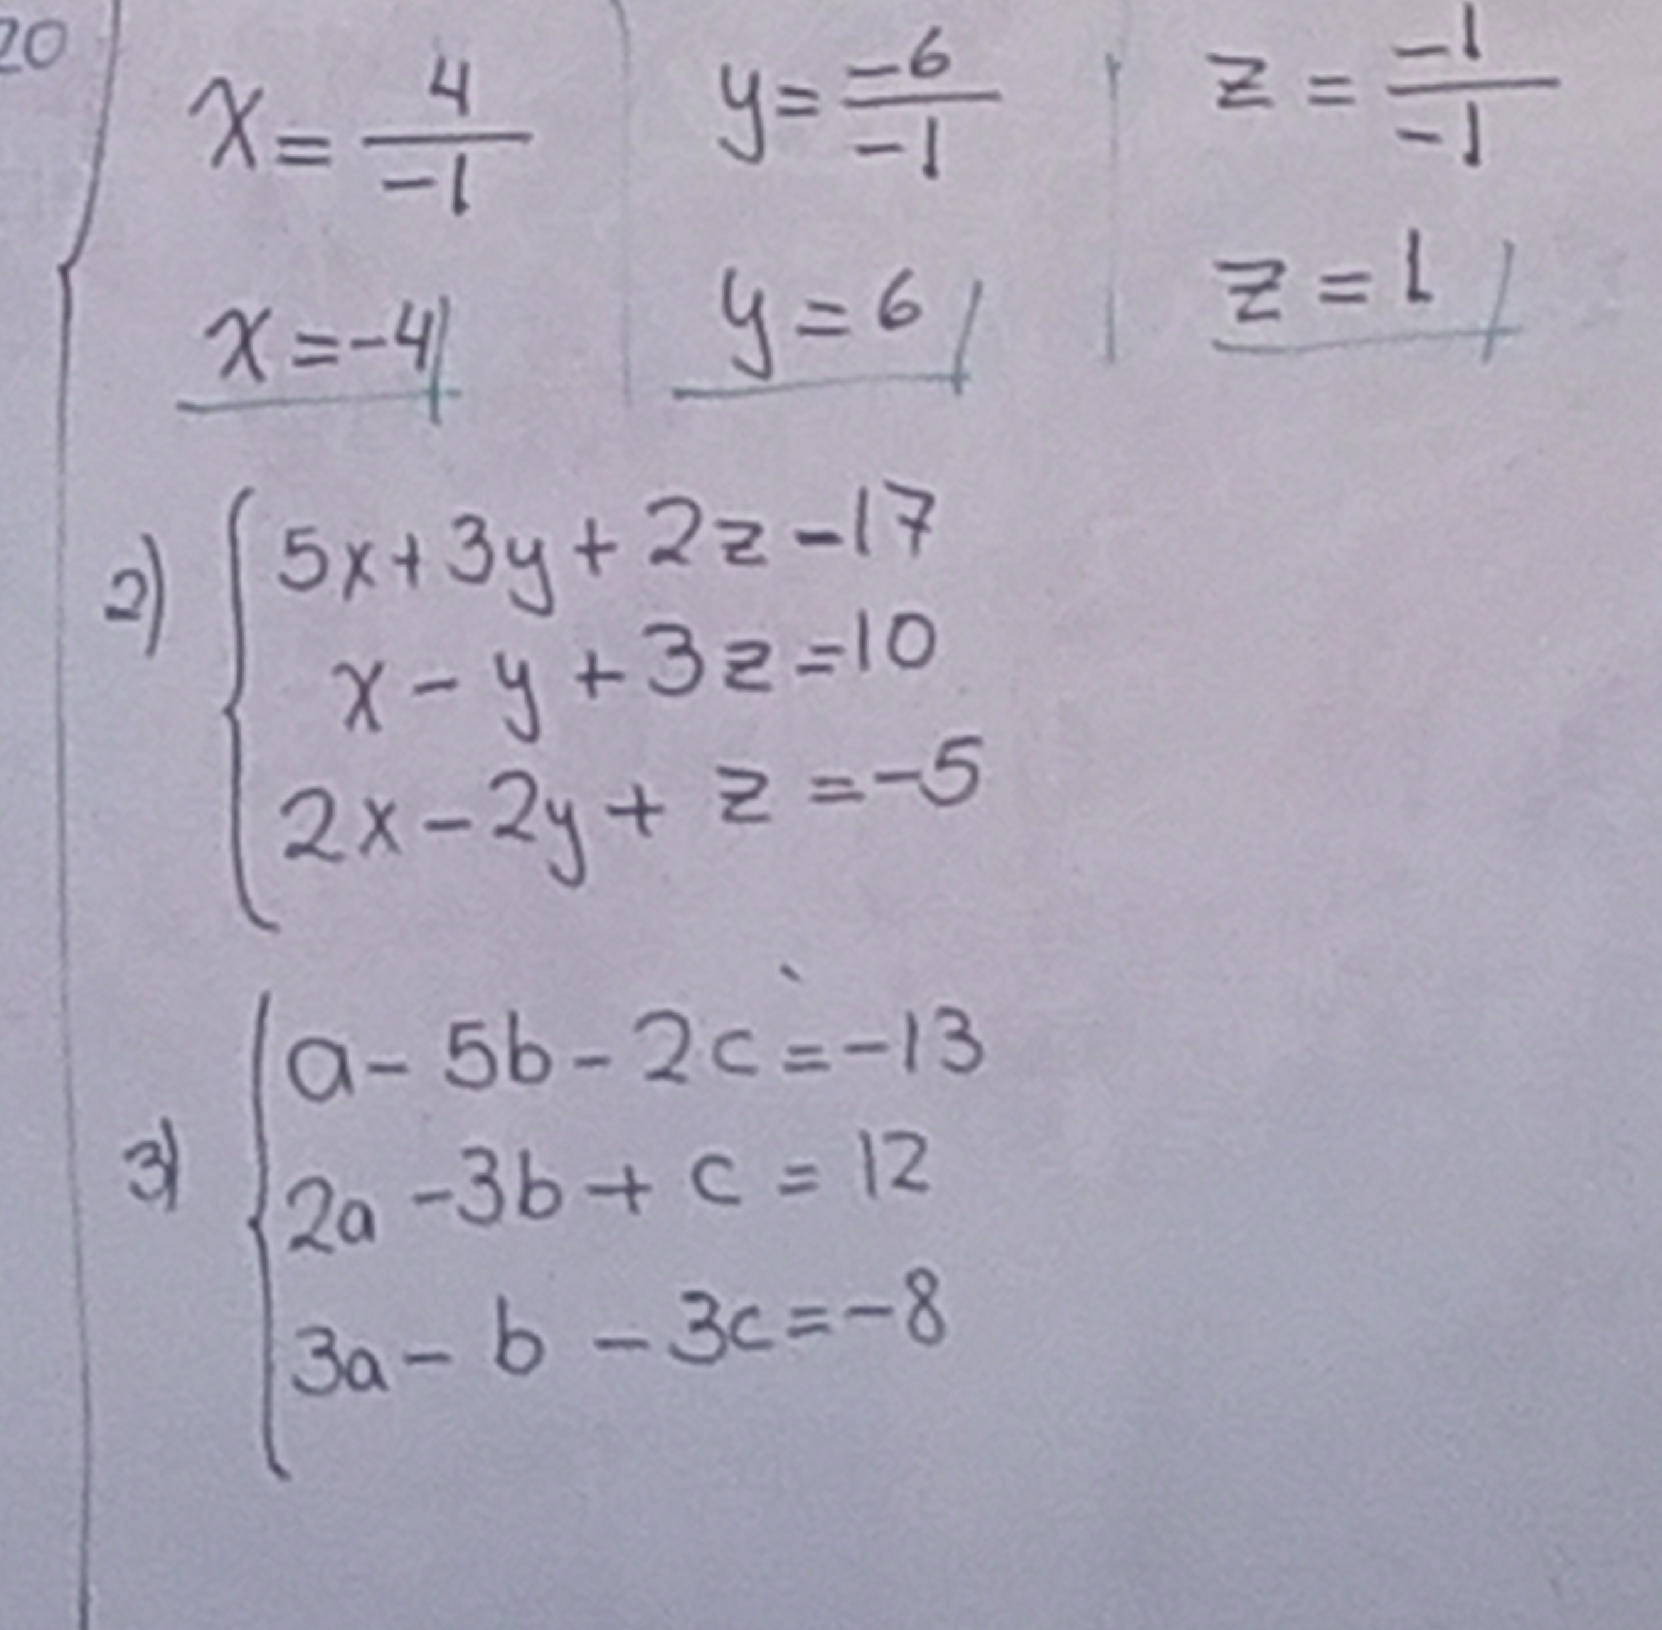 20
x = 4/-1 y = -6/-1 z = -1/-1
x = -4 y = 6 z = 1
2) 5x + 3y + 2z - 17
x - y + 3z = 10
2x - 2y + z = -5
3) a - 5b - 2c = -13
2a - 3b + c = 12
3a - b - 3c = -8